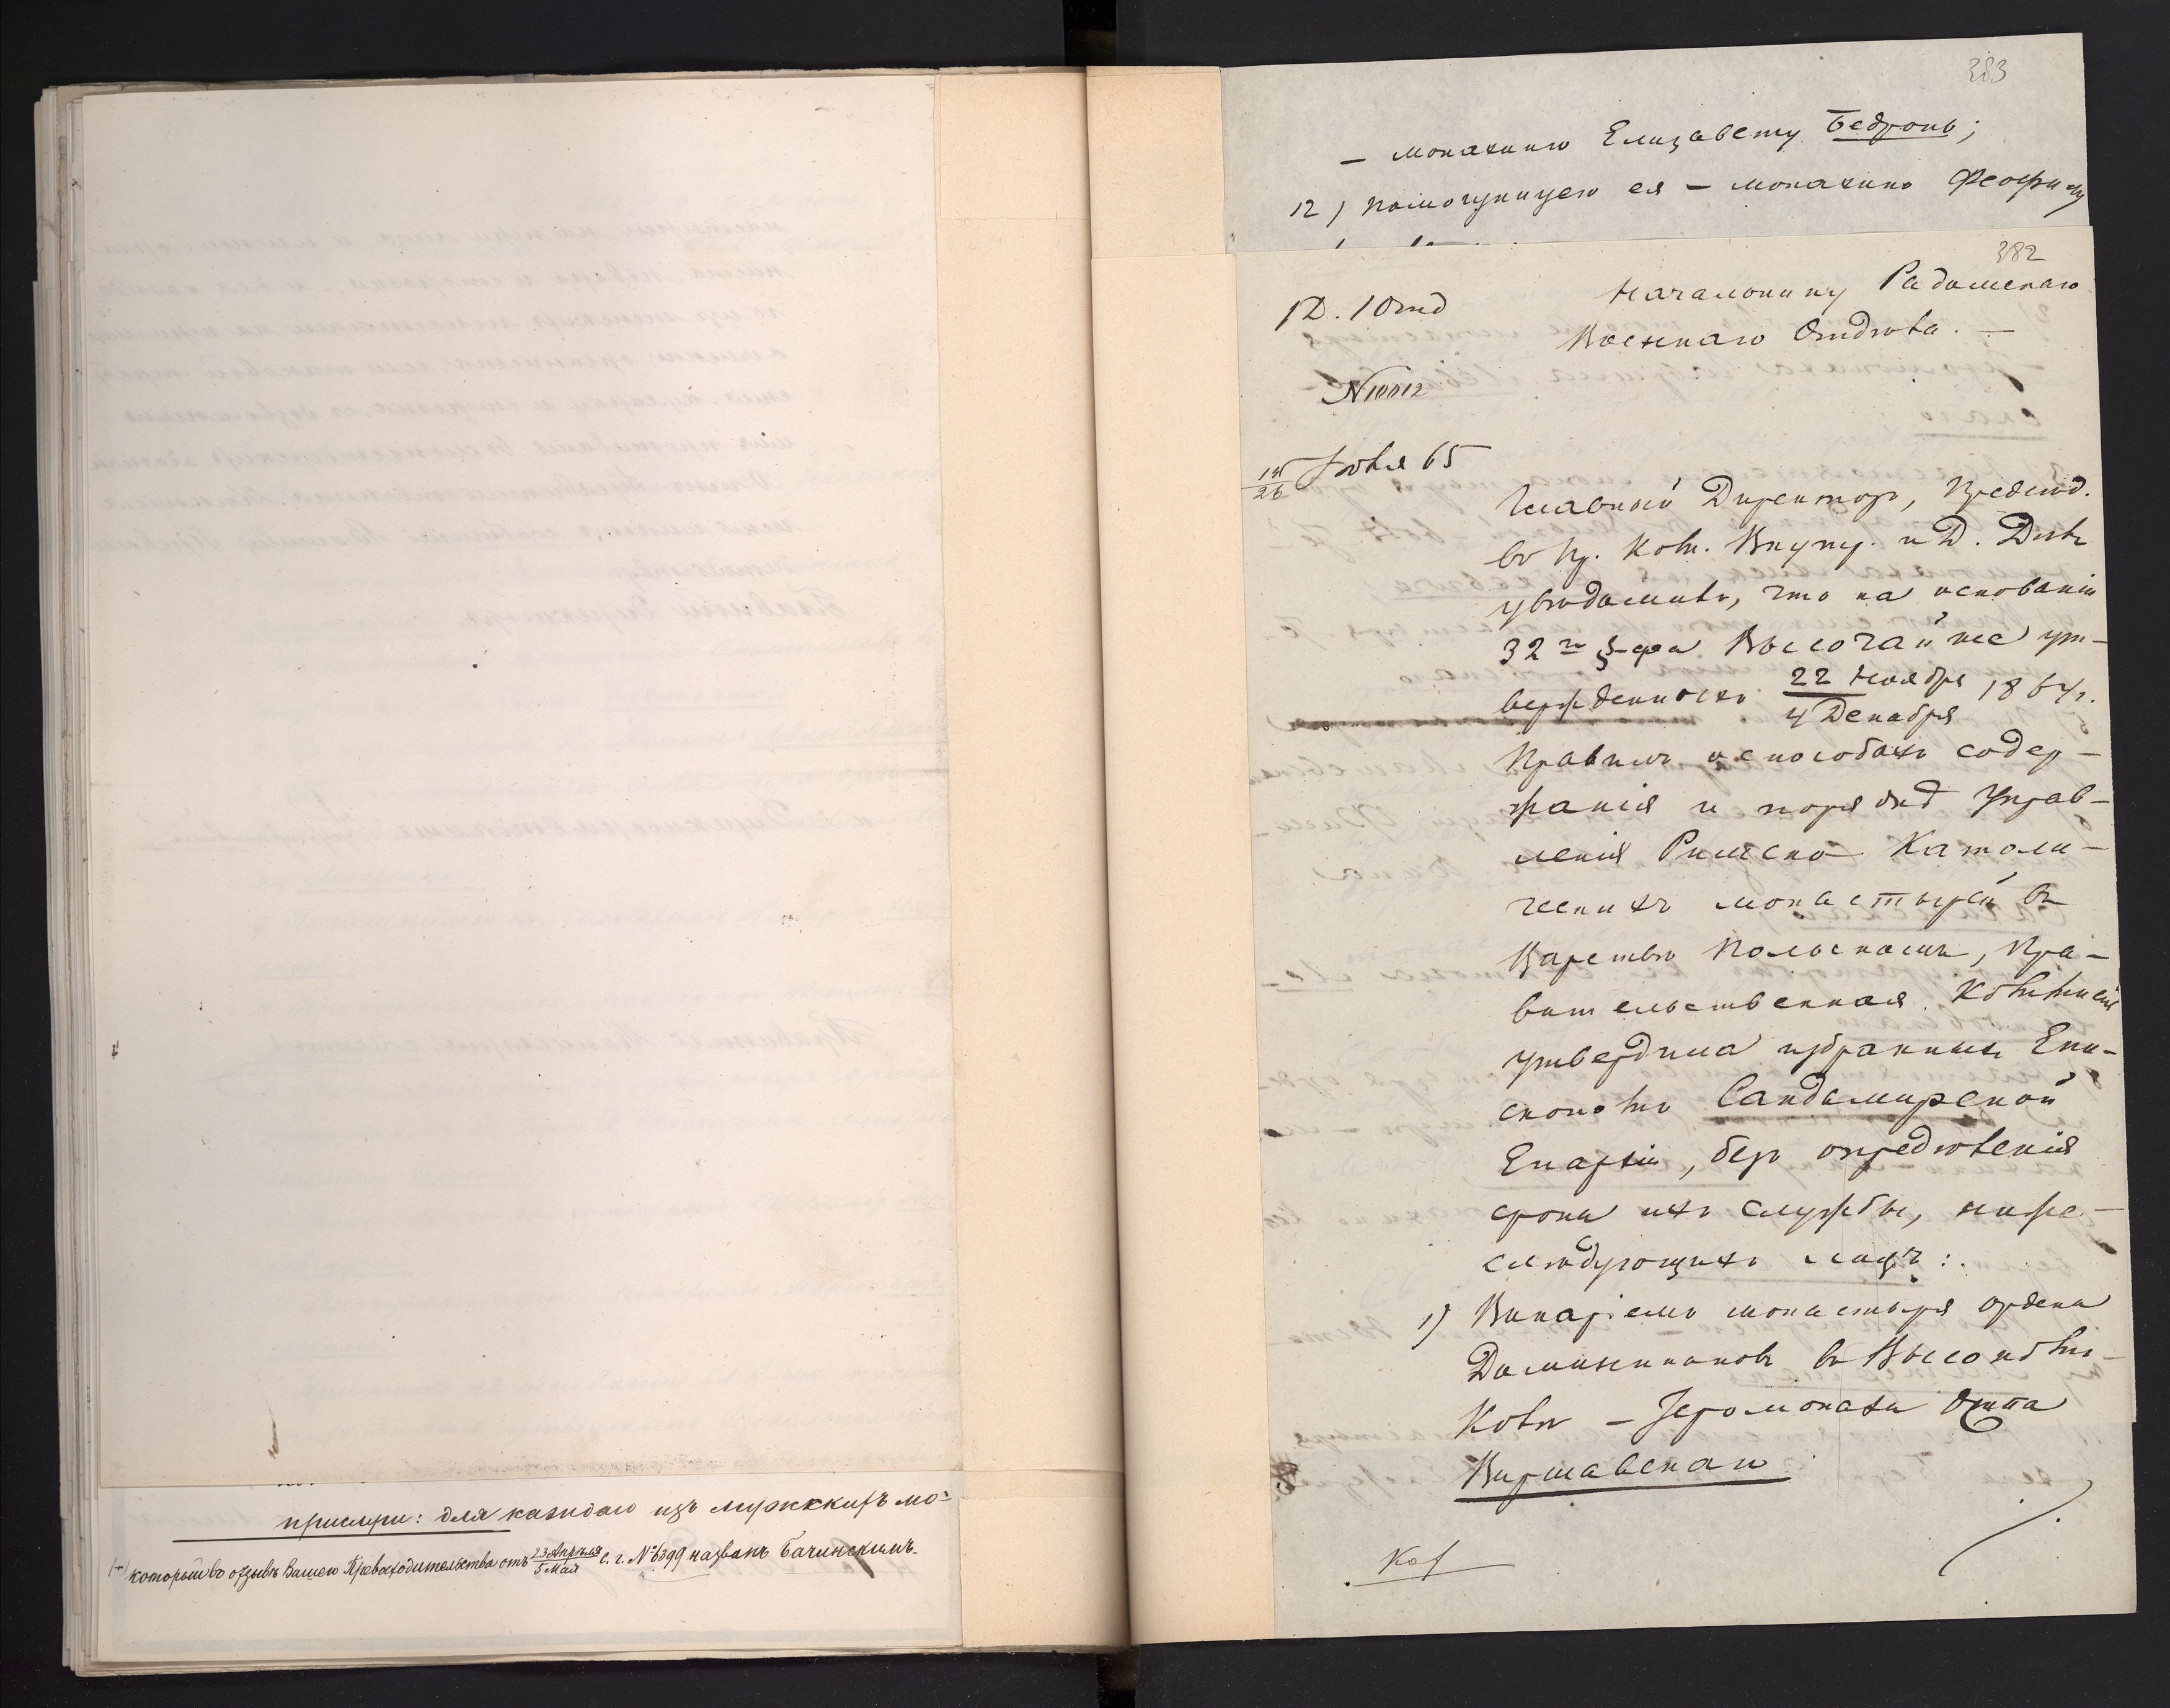 примѣри: для каждаго изъ мужскихъ мо=
(+) который въ отзывѣ Вашего Превосходительства отъ 23 Апрѣля / 5 Мая с. г. № 6399 названъ Бачинскимъ.
383
— монахиню Елизавету Бедронь;
12) помощницею ея — монахиню Феофи
382
1 Отд
Начальнику Радомскаго
Военнаго Отдѣла. —
№ 10012
14/26 Іюля 65
Главный Директоръ, Предсѣд.
въ Пр. Ком. Внутр. и Д. Дѣлъ
увѣдомилъ, что на основаніи
32го §-фа Высочайше ут-
вержденныхъ 22 Ноября / 4 Декабря 1864 г.
Правилъ о способахъ содер-
жанія и порядкѣ Управ-
ленія Римско-Католи-
ческихъ монастырей въ
Царствѣ Польскомъ, Пра-
вительственная Коммисія
утвердила избранныхъ Епи-
скопомъ Сандомирской
Епархіи, безъ опредѣленія
срока ихъ службы, ниже-
слѣдующихъ лицъ:
1) Викаріемъ монастыря ордена
Доминикановъ въ Высокомъ-
Колѣ — Іеромонаха Отта
Виршавскаго